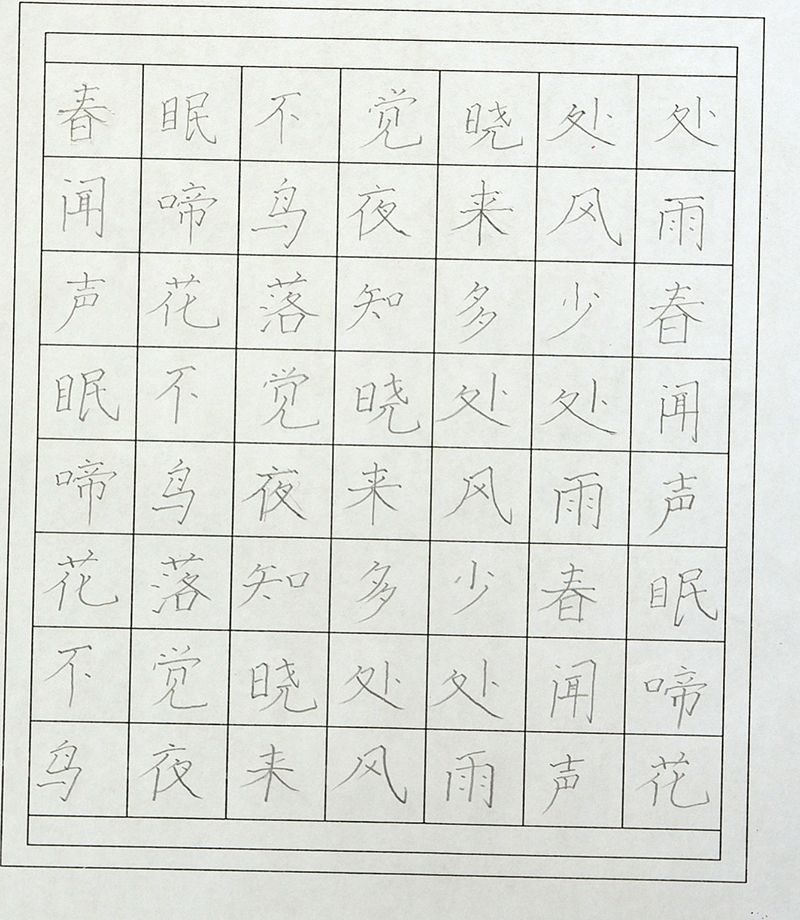 春眠不觉晓处处
闻啼鸟夜来风雨
声花落知多少春
眠不觉晓处处闻
啼鸟夜来风雨声
花落知多少春眠
不觉晓处处闻啼
鸟夜来风雨声花